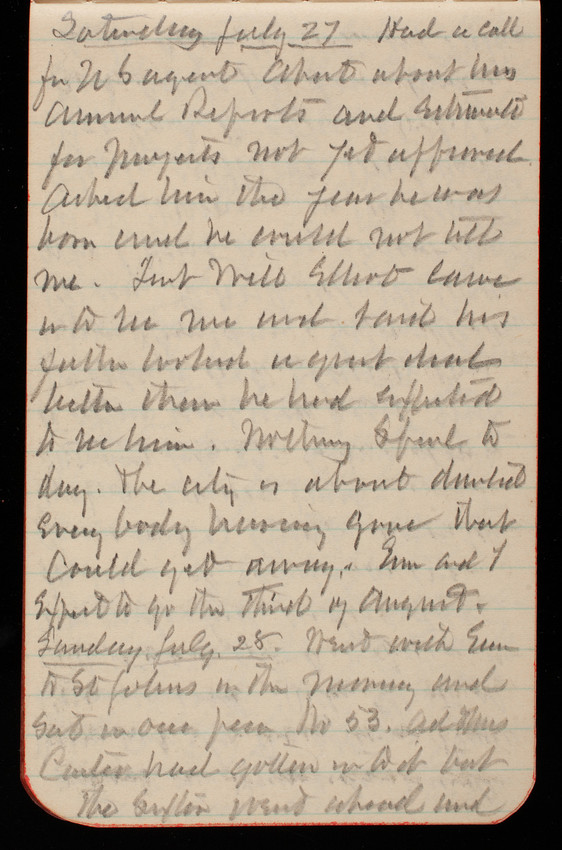 Saturday July 27 Had a call
for U S agent Abert about his
Annual Reports and Estimates
for projects not yet approved
Asked him the year he was
born and he could not tell
me. Lieut Will Elliot came
in to see me and said his
father looked a great deal
better than he had expected
to see him. Nothing special to
day. The city is about deserted
Everybody having gone that
could get away. Em and I
Expect to go the third of August.
Sunday July 28. Went with Em
to St Johns in the morning and
sat in our pew No 53.
Carter had gotten into it but
the Sexton went ahead and